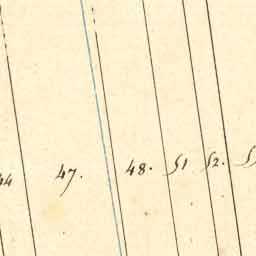 44 47. 48. 51 52.